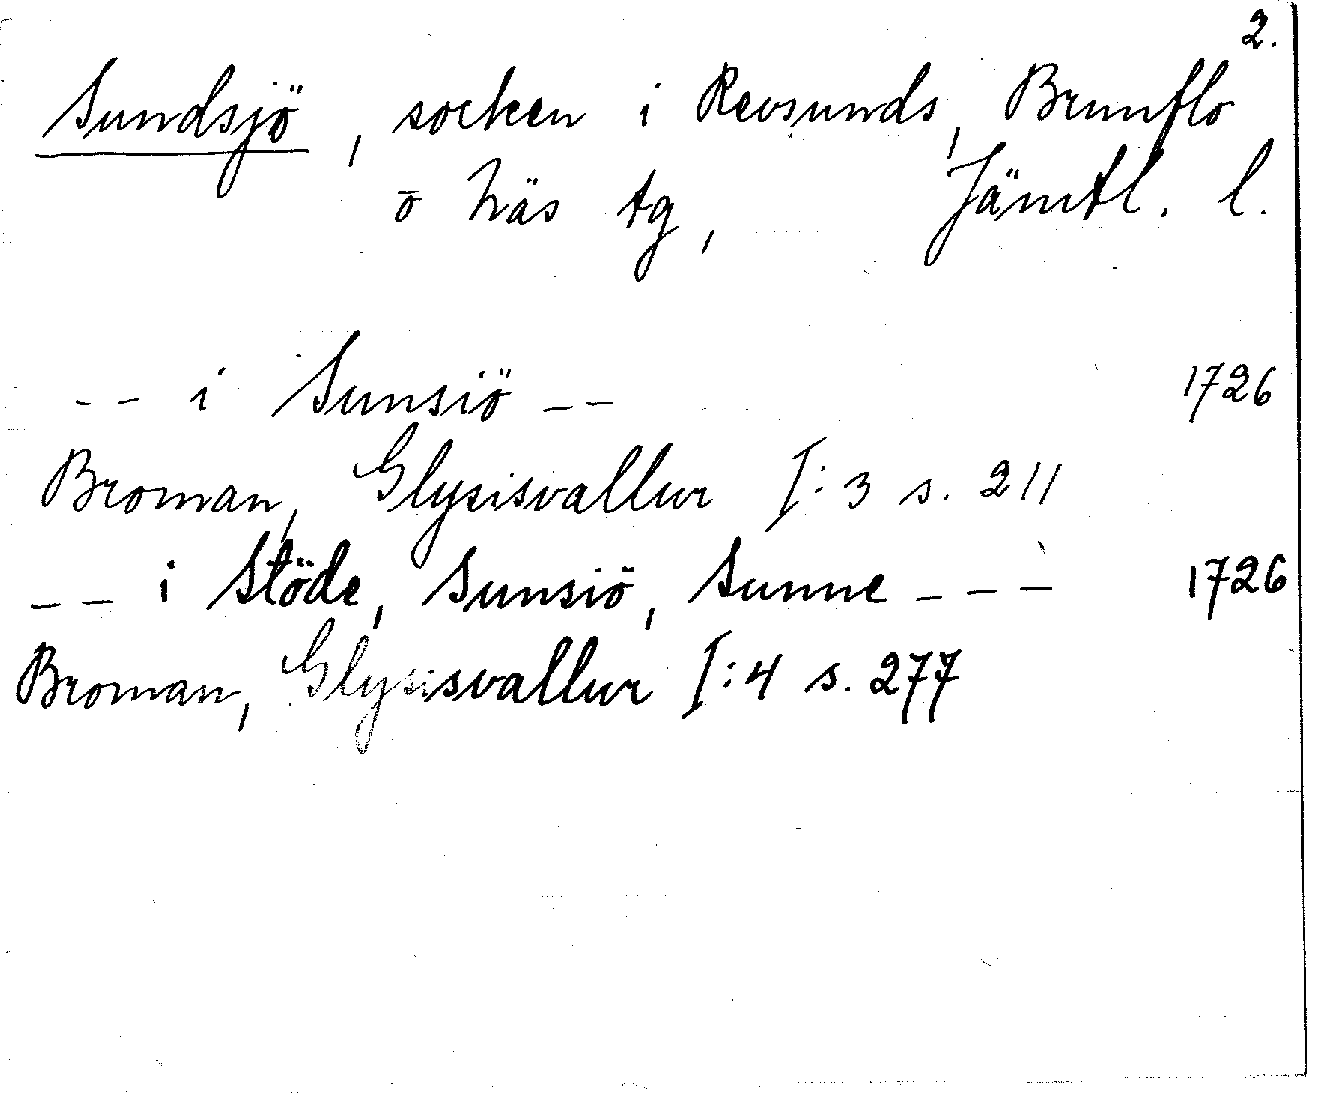 2.
Sundsjö, socken i Revsunds, Brunflo
o Näs tg, Jämtl. l.
-- i Sunsiö -- 1726
Broman, Glysisvallur I:3 s. 211
-- i Stöde, Sunsiö, Sunne --- 1726
Broman, Glysisvallur I:4 s. 277